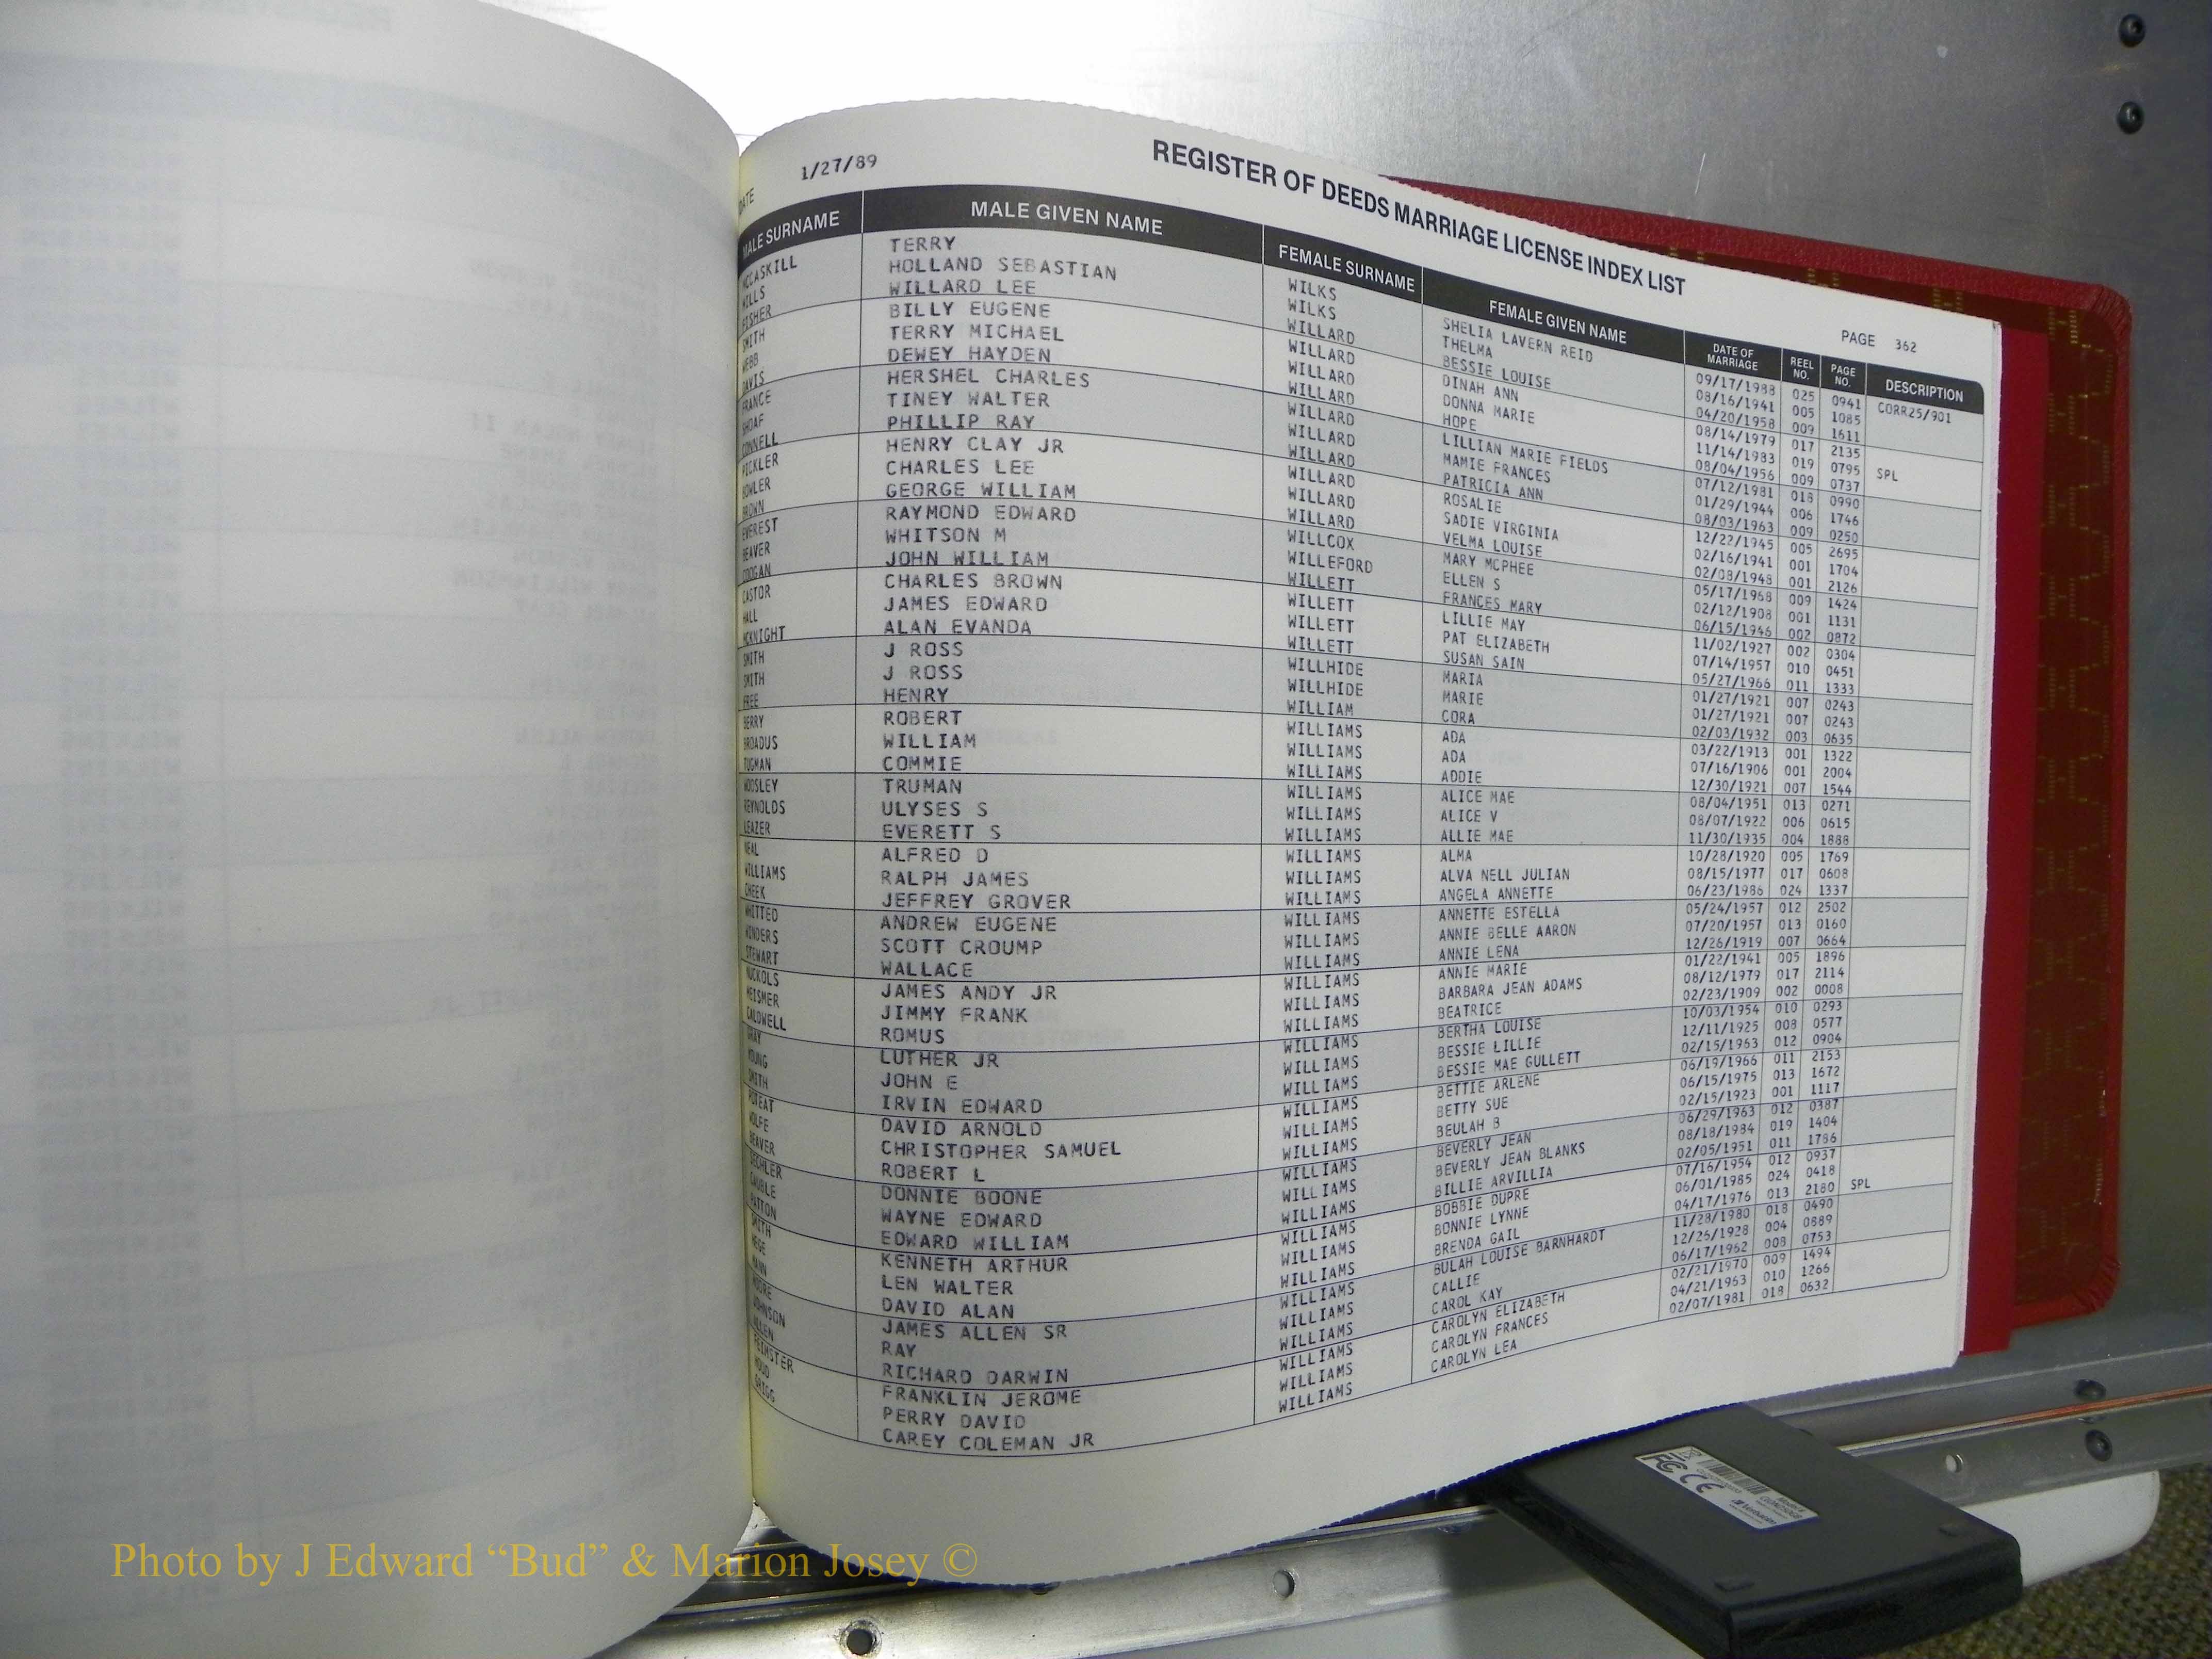 DATE 1/27/89 REGISTER OF DEEDS MARRIAGE LICENSE INDEX LIST PAGE 362
MALE SURNAME MALE GIVEN NAME FEMALE SURNAME FEMALE GIVEN NAME DATE OF MARRIAGE REEL NO. PAGE NO. DESCRIPTION
MCCASKILL TERRY WILKS SHELIA LAVERN REID 09/17/1988 025 0941 CORR25/901
MILLS HOLLAND SEBASTIAN WILKS THELMA 08/16/1941 005 1085
FISHER WILLARD LEE WILLARD BESSIE LOUISE 04/20/1958 009 1611
SMITH BILLY EUGENE WILLARD DINAH ANN 08/14/1979 017 2135
WEBB TERRY MICHAEL WILLARD DONNA MARIE 11/14/1983 019 0795 SPL
DAVIS DEWEY HAYDEN WILLARD HOPE 08/04/1956 009 0737
FRANCE HERSHEL CHARLES WILLARD LILLIAN MARIE FIELDS 07/12/1981 018 0990
SHOAF TINEY WALTER WILLARD MAMIE FRANCES 01/29/1944 006 1746
CONNELL PHILLIP RAY WILLARD PATRICIA ANN 08/03/1963 009 0250
PICKLER HENRY CLAY JR WILLARD ROSALIE 12/22/1945 005 2695
BOWLER CHARLES LEE WILLARD SADIE VIRGINIA 02/16/1941 001 1704
BROWN GEORGE WILLIAM WILLARD VELMA LOUISE 02/08/1948 001 2126
EVEREST RAYMOND EDWARD WILLCOX MARY MCPHEE 05/17/1968 009 1424
BEAVER WHITSON M WILLEFORD ELLEN S 02/12/1908 001 1131
COOGAN JOHN WILLIAM WILLETT FRANCES MARY 06/15/1946 002 0872
CASTOR CHARLES BROWN WILLETT LILLIE MAY 11/02/1927 002 0304
HALL JAMES EDWARD WILLETT PAT ELIZABETH 07/14/1957 010 0451
MCKNIGHT ALAN EVANDA WILLETT SUSAN SAIN 05/27/1966 011 1333
SMITH J ROSS WILLHIDE MARIA 01/27/1921 007 0243
SMITH J ROSS WILLHIDE MARIE 01/27/1921 007 0243
FREE HENRY WILLIAM CORA 02/03/1932 003 0635
BERRY ROBERT WILLIAMS ADA 03/22/1913 001 1322
BROADUS WILLIAM WILLIAMS ADA 07/16/1906 001 2004
TUGMAN COMMIE WILLIAMS ADDIE 12/30/1921 007 1544
TRUMAN WILLIAMS ALICE MAE 08/04/1951 013 0271
REYNOLDS ULYSES S WILLIAMS ALICE V 08/07/1922 006 0615
LEAZER EVERETT S WILLIAMS ALLIE MAE 11/30/1935 004 1888
NEAL ALFRED D WILLIAMS ALMA 10/28/1920 005 1769
WILLIAMS RALPH JAMES WILLIAMS ALVA NELL JULIAN 08/15/1977 017 0608
CHEEK JEFFREY GROVER WILLIAMS ANGELA ANNETTE 06/23/1986 024 1337
WHITTED ANDREW EUGENE WILLIAMS ANNETTE ESTELLA 05/24/1957 012 2502
WINDERS SCOTT CROUMP WILLIAMS ANNIE BELLE AARON 07/20/1957 013 0160
STEWART WALLACE WILLIAMS ANNIE LENA 12/26/1919 007 0664
NUCKOLS JAMES ANDY JR WILLIAMS ANNIE MARIE 01/22/1941 005 1896
MEISMER JIMMY FRANK WILLIAMS BARBARA JEAN ADAMS 08/12/1979 017 2114
CALDWELL ROMUS WILLIAMS BEATRICE 02/23/1909 002 0008
GRAY LUTHER JR WILLIAMS BERTHA LOUISE 10/03/1954 010 0293
YOUNG JOHN E WILLIAMS BESSIE LILLIE 12/11/1925 008 0577
SMITH IRVIN EDWARD WILLIAMS BESSIE MAE GULLETT 02/15/1963 012 0904
POTEAT DAVID ARNOLD WILLIAMS BETTIE ARLENE 06/19/1966 011 2153
WOLFE CHRISTOPHER SAMUEL WILLIAMS BETTY SUE 06/15/1975 013 1672
BEAVER ROBERT L WILLIAMS BEULAH B 02/15/1923 001 1117
SECHLER DONNIE BOONE WILLIAMS BEVERLY JEAN 06/29/1963 012 0387
CAUBLE WAYNE EDWARD WILLIAMS BEVERLY JEAN BLANKS 08/18/1984 019 1404
PATTON EDWARD WILLIAM WILLIAMS BILLIE ARVILLIA 02/05/1951 011 1786
SMITH KENNETH ARTHUR WILLIAMS BOBBIE DUPRE 07/16/1954 012 0937
HEGE LEN WALTER WILLIAMS BONNIE LYNNE 06/01/1985 024 0418
MANN DAVID ALAN WILLIAMS BRENDA GAIL 04/17/1976 013 2180 SPL
MOORE JAMES ALLEN SR WILLIAMS BULAH LOUISE BARNHARDT 11/28/1980 018 0490
JOHNSON RAY WILLIAMS CALLIE 12/26/1928 004 0889
ALLEN RICHARD DARWIN WILLIAMS CAROL KAY 06/17/1962 008 0753
FEIMSTER FRANKLIN JEROME WILLIAMS CAROLYN ELIZABETH 02/21/1970 009 1494
WOOD PERRY DAVID WILLIAMS CAROLYN FRANCES 04/21/1963 010 1266
GRIGG CAREY COLEMAN JR WILLIAMS CAROLYN LEA 02/07/1981 018 0632
FC CE
Verbatim
Photo by J Edward “Bud” & Marion Josey ©